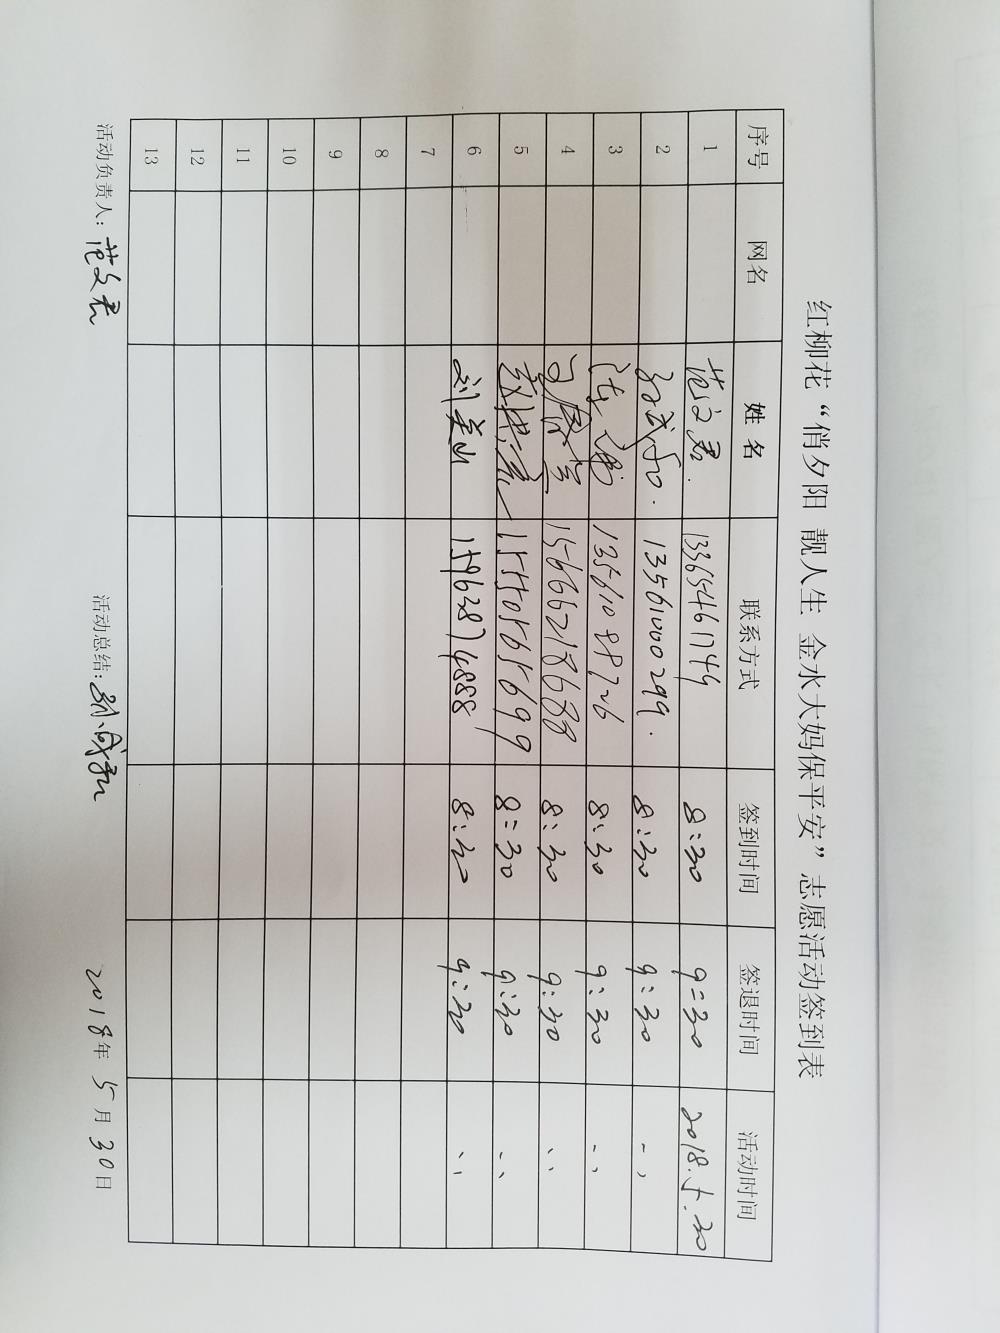 红柳花“俏夕阳 靓人生 金水大妈保平安”志愿活动签到表
序号 网名 姓名 联系方式 签到时间 签退时间 活动时间
1 范文君 13365461744 8:30 9:30 2018.5.30
2 13561000299 8:30 9:30 〃
3 8:30 9:30 〃
4 15666218688 8:30 9:30 〃
5 1550565699 8:30 9:30 〃
6 刘美山 15963874888 8:30 9:30 〃
7
8
9
10
11
12
13
活动负责人:范文君 活动总结: 2018年5月30日